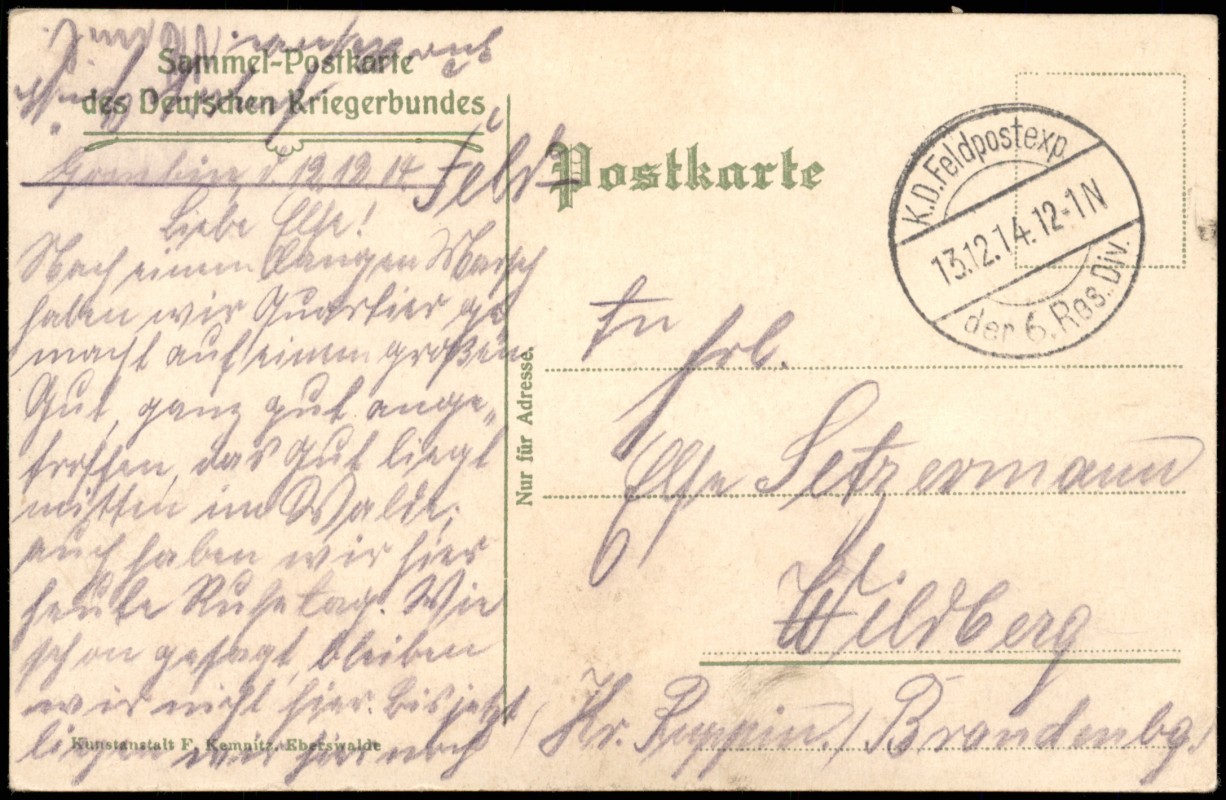 Sammel-Postkarte
des Deutschen Kriegerbundes
Gombin d 12 12 14
Liebe Else!
Nach einem langen Marsch
haben wir Quartier ge
macht auf einem großen
Gut, ganz gut ange„
troffen, das Gut liegt
mitten im Walde,
auch haben wir hier
heute Ruhetag. Wie
schon gesagt, bleiben
wir nicht hier. bis jetzt
liegen wir hier noch
Kunstanstalt F. Kemnitz, Eberswalde
Nur für Adresse.
Feld-
Postkarte
K.D. Feldpostexp.
13.12.14. 12-1N
der 6. Res. Div.
Frl.
Else Setzermann
Wildberg
Kr. Ruppin / Brandenbg.